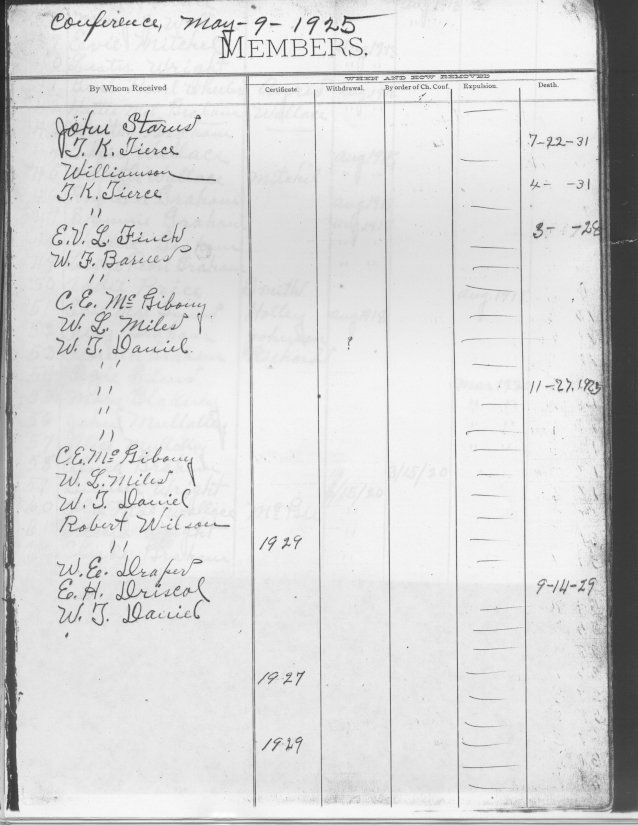 Conference, May-9-1925
MEMBERS.
WHEN AND HOW REMOVED
By Whom Received Certificate. Withdrawal. By order of Ch. Conf. Expulsion. Death.
John Starns
T. K. Tierce 7-22-31
Williamson
T. K. Tierce 4- -31
"
E. V. L. Finch 3- -28
W. F. Barnes
"
C. E. McGibony
W. L. Miles
W. T. Daniel ?
"
" 11-27.1925
"
"
C. E. McGibony
W. L. Miles
W. T. Daniel
Robert Wilson
" 1929
W. E. Draper
E. H. Driscol 9-14-29
W. T. Daniel
1927
1929